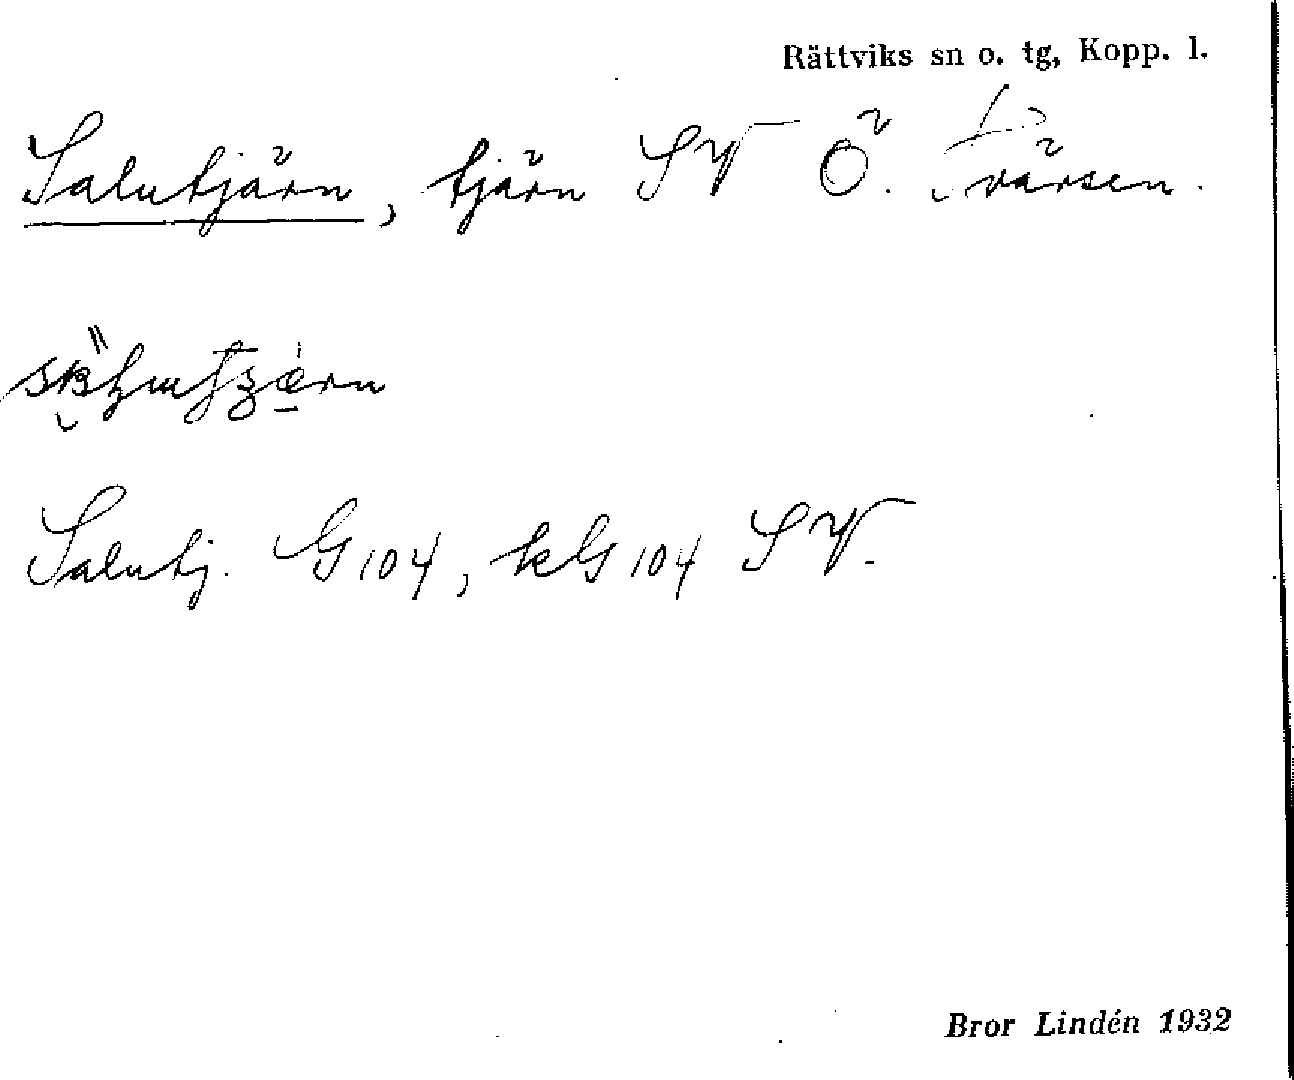 Rättviks sn o. tg, Kopp. l.
Salutjärn, tjärn SV Ö. Tvärsen.
Salutj. G104, kG104 SV.
Bror Lindén 1932